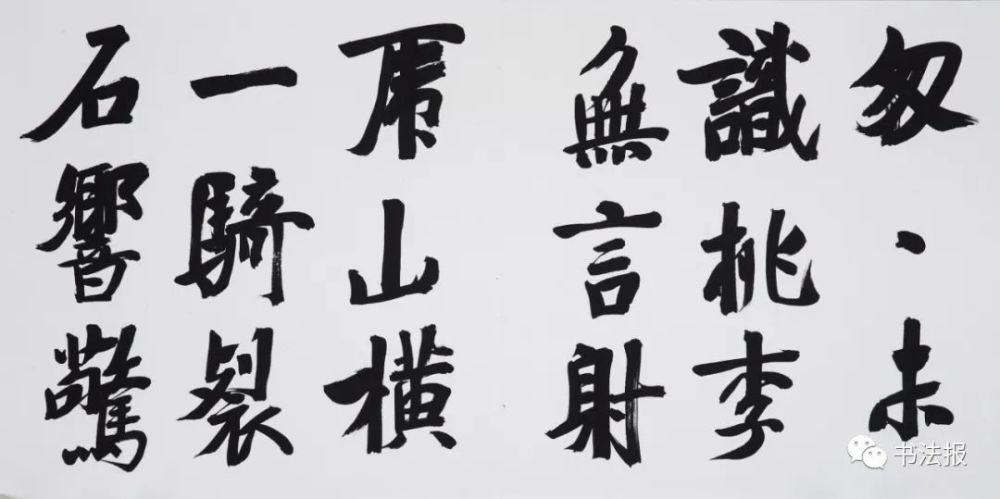 匆、未
識桃李
無言射
虎山横
一騎裂
石響驚
书法报